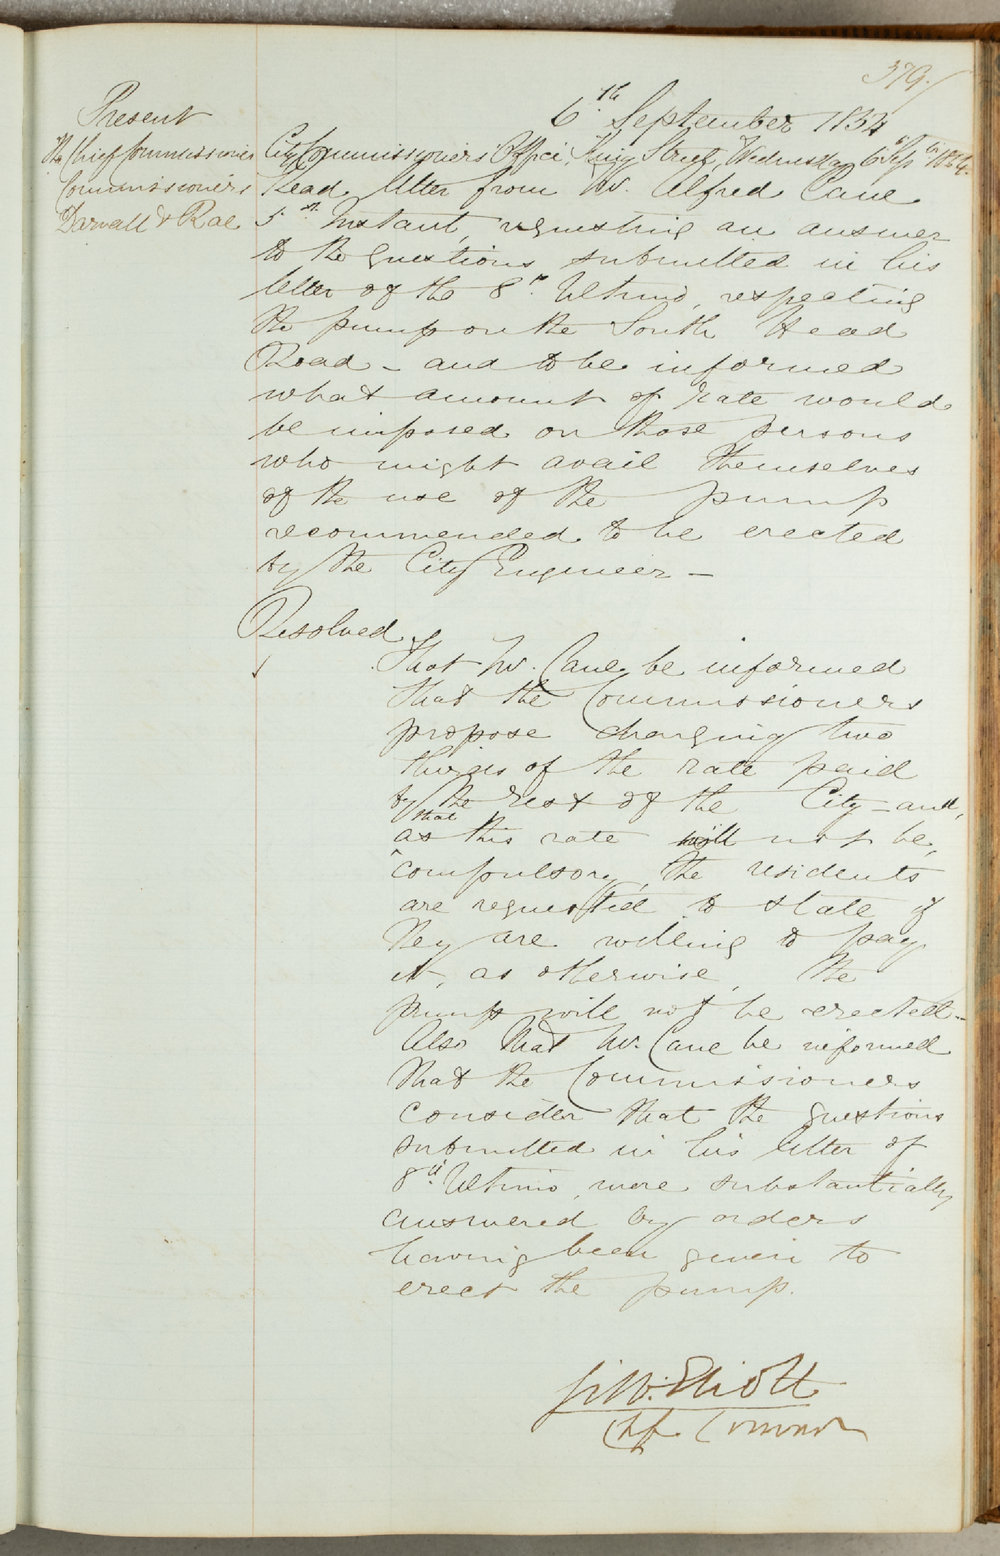 379.
6.th September 1854
Present
The Chief Commissioner
Commissioners
Darvall & Rae
City Commissioners' Office, King Street, Wednesday 6 Sept 1854.
Read letter from Mr. Alfred Cane
5th Instant, requesting an answer
to the questions submitted in his
letter of the 8th. Ultimo, respecting
the pump on the South Head
Road - and to be informed
what amount of rate would
be imposed on those persons
who might avail themselves
of the use of the pump
recommended to be erected
by the City Engineer -
Resolved
That Mr. Cane be informed
that the Commissioners
propose charging two
thirds of the rate paid
by the rest of the City - and,
that
as this rate will not be,
compulsory, the residents
are requested to state if
they are willing to pay
it, as otherwise, the
pump will not be erected -
Also that Mr. Cane be informed
that the Commissioners
consider that the questions
submitted in his letter of
8th. Ultimo, were substantially
answered by orders
having been given to
erect the pump.
G. W. Eliott
Chf Commr